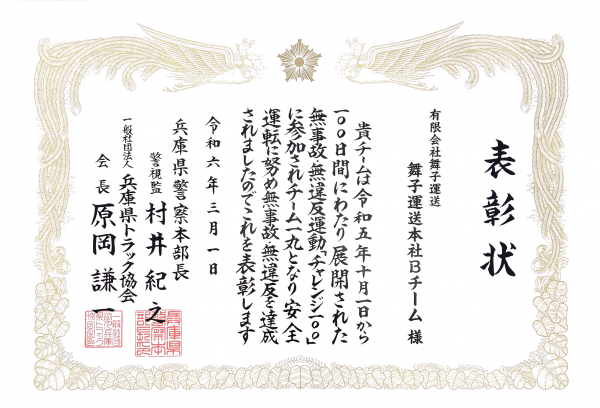 表彰状
有限会社舞子運送
舞子運送本社Bチーム 様
貴チームは令和五年十月一日から
一〇〇日間にわたり展開された
無事故・無違反運動「チャレンジ一〇〇」
に参加されチーム一丸となり安全
運転に努め無事故・無違反を達成
されましたのでこれを表彰します
令和六年三月一日
兵庫県警察本部長
警視監 村井紀之
一般社団法人 兵庫県トラック協会
会長 原岡謙一